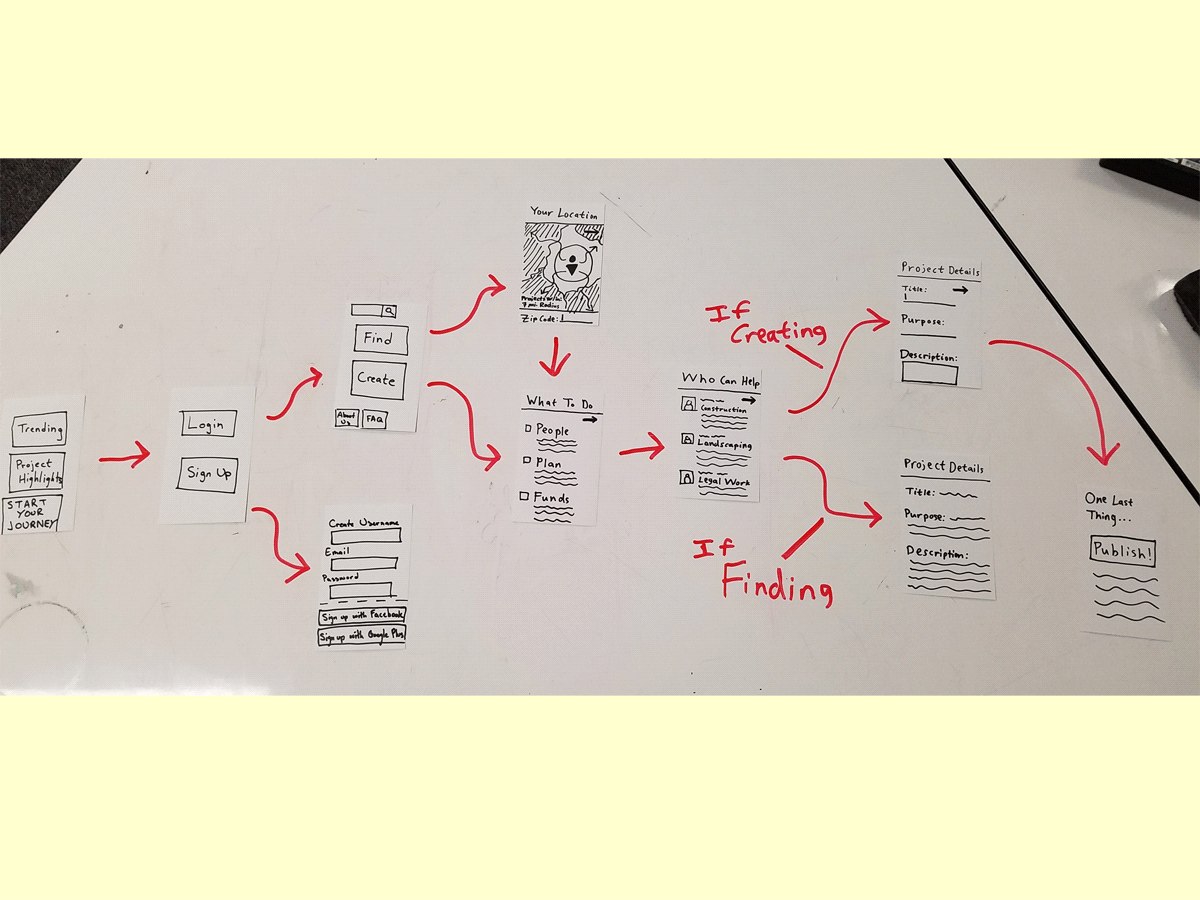 Trending
Project
Highlights
START
YOUR
JOURNEY
Login
Sign Up
Find
Create
About
Us
FAQ
Create Username
Email
Password
Sign up with Facebook
Sign up with Google Plus
Your Location
Projects w/in
7 mi. Radius
Zip Code:
What To Do
People
Plan
Funds
Who Can Help
Construction
Landscaping
Legal Work
If
Creating
If
Finding
Project Details
Title:
Purpose:
Description:
Project Details
Title:
Purpose:
Description:
One Last
Thing...
Publish!